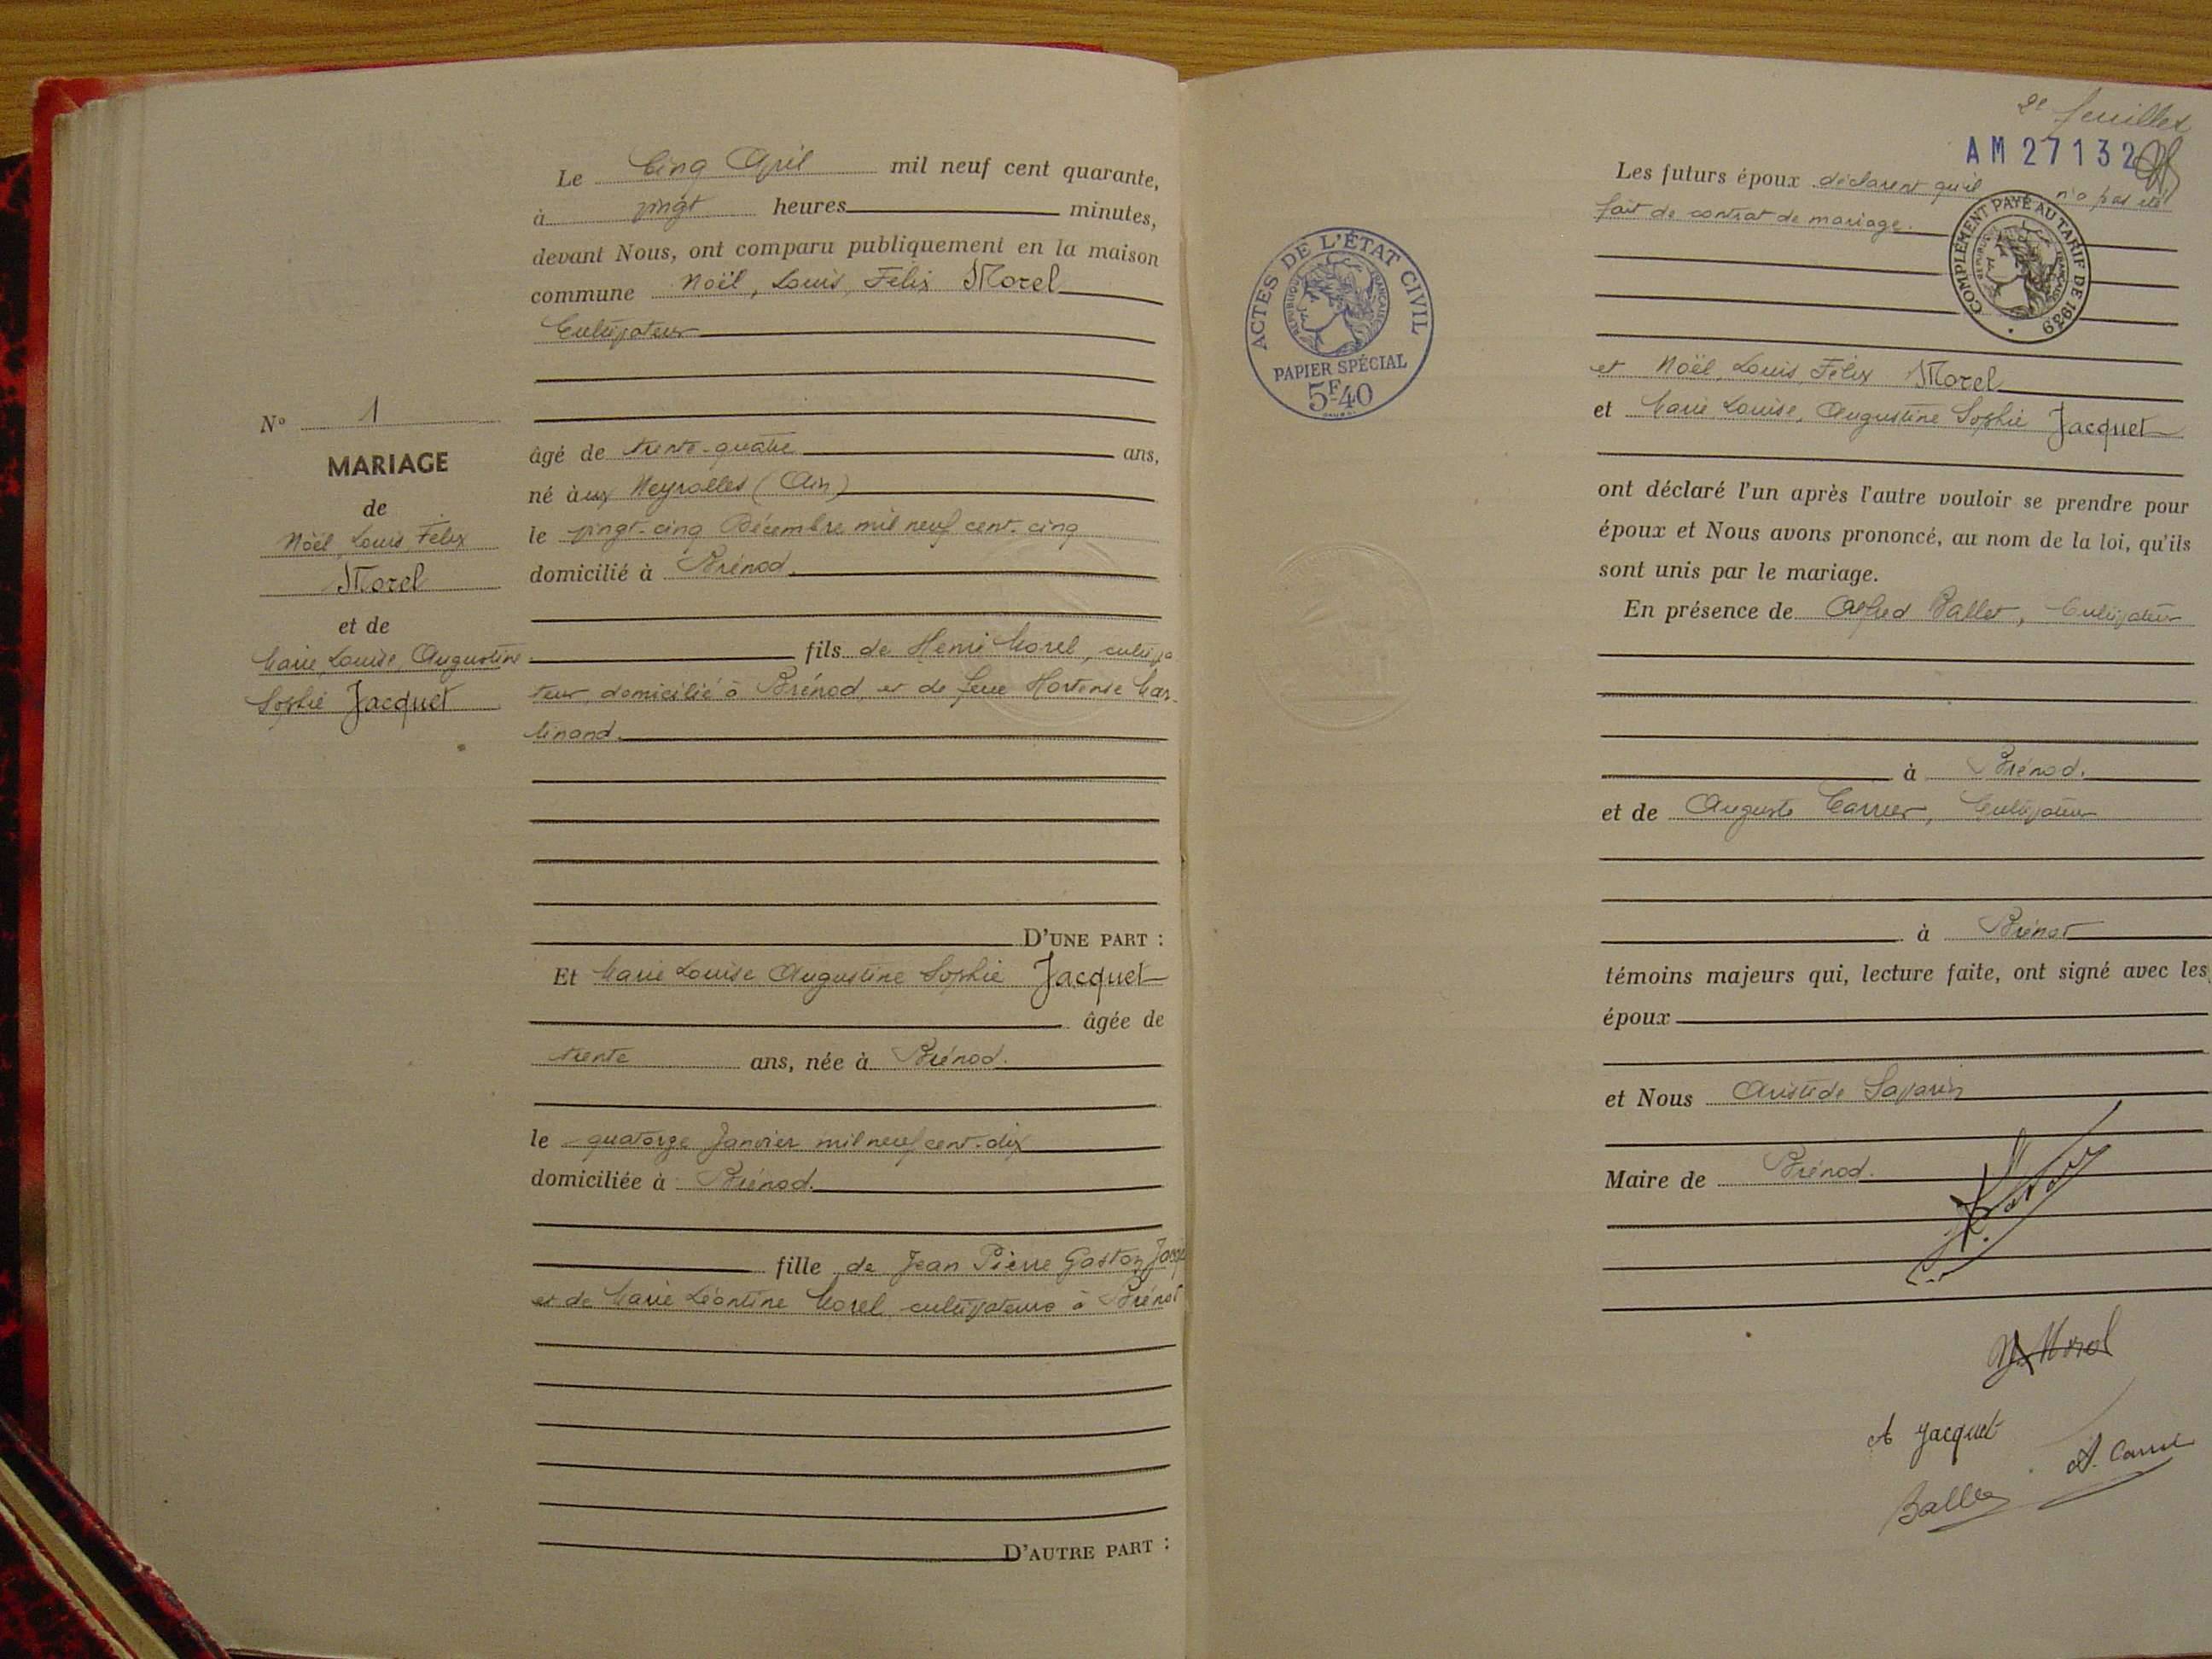 N° 1
MARIAGE
de
Noël, Louis, Félix
Morel
et de
Marie, Louise, Augustine
Sophie Jacquet
Le Cinq Avril mil neuf cent quarante,
à vingt heures minutes,
devant Nous, ont comparu publiquement en la maison
commune Noël, Louis, Félix Morel
Cultivateur
âgé de trente-quatre ans,
né aux Neyrolles (Ain)
le vingt-cinq Décembre mil neuf cent-cinq
domicilié à Brénod.
fils de Henri Morel, cultiva
teur, domicilié à Brénod, et de feue Hortense Mar-
tinand.
D'UNE PART :
Et Marie Louise Augustine Sophie Jacquet
âgée de
trente ans, née à Brénod.
le quatorze Janvier mil neuf cent-dix
domiciliée à Brénod.
fille de Jean Pierre Gaston
et de Marie Léontine Morel, cultivateurs à Brénod
D'AUTRE PART :
2e feuillet
AM 27132
Les futurs époux déclarent qu'il n'a pas été
fait de contrat de mariage.
COMPLÉMENT PAYÉ AU TARIF DE 1939
RÉPUBLIQUE FRANÇAISE
ACTES DE L'ÉTAT CIVIL
RÉPUBLIQUE FRANÇAISE
PAPIER SPÉCIAL
5F40
et Noël, Louis, Félix Morel
et Marie Louise, Augustine Sophie Jacquet
ont déclaré l'un après l'autre vouloir se prendre pour
époux et Nous avons prononcé, au nom de la loi, qu'ils
sont unis par le mariage.
En présence de Alfred Ballet, Cultivateur
à Brénod.
et de Auguste Carrier, Cultivateur
à Brénod
témoins majeurs qui, lecture faite, ont signé avec les
époux
et Nous Aristide Savarin
Maire de Brénod.
N. Morel
A Jacquet
A. Carrier
Ballet